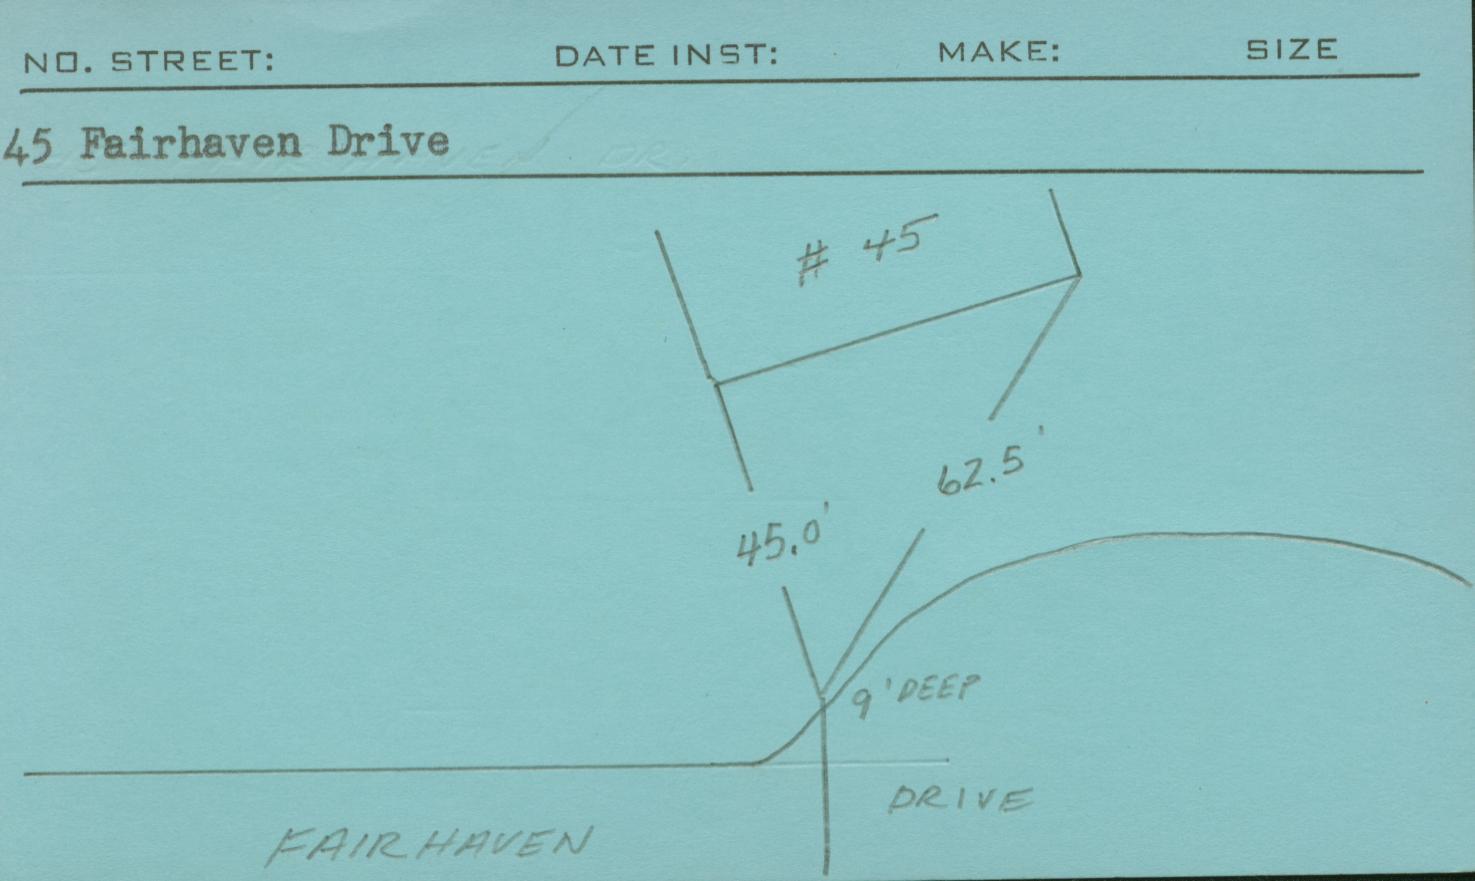 NO. STREET: DATE INST: MAKE: SIZE
45 Fairhaven Drive
# 45
62.5'
45.0'
9' DEEP
DRIVE
FAIRHAVEN